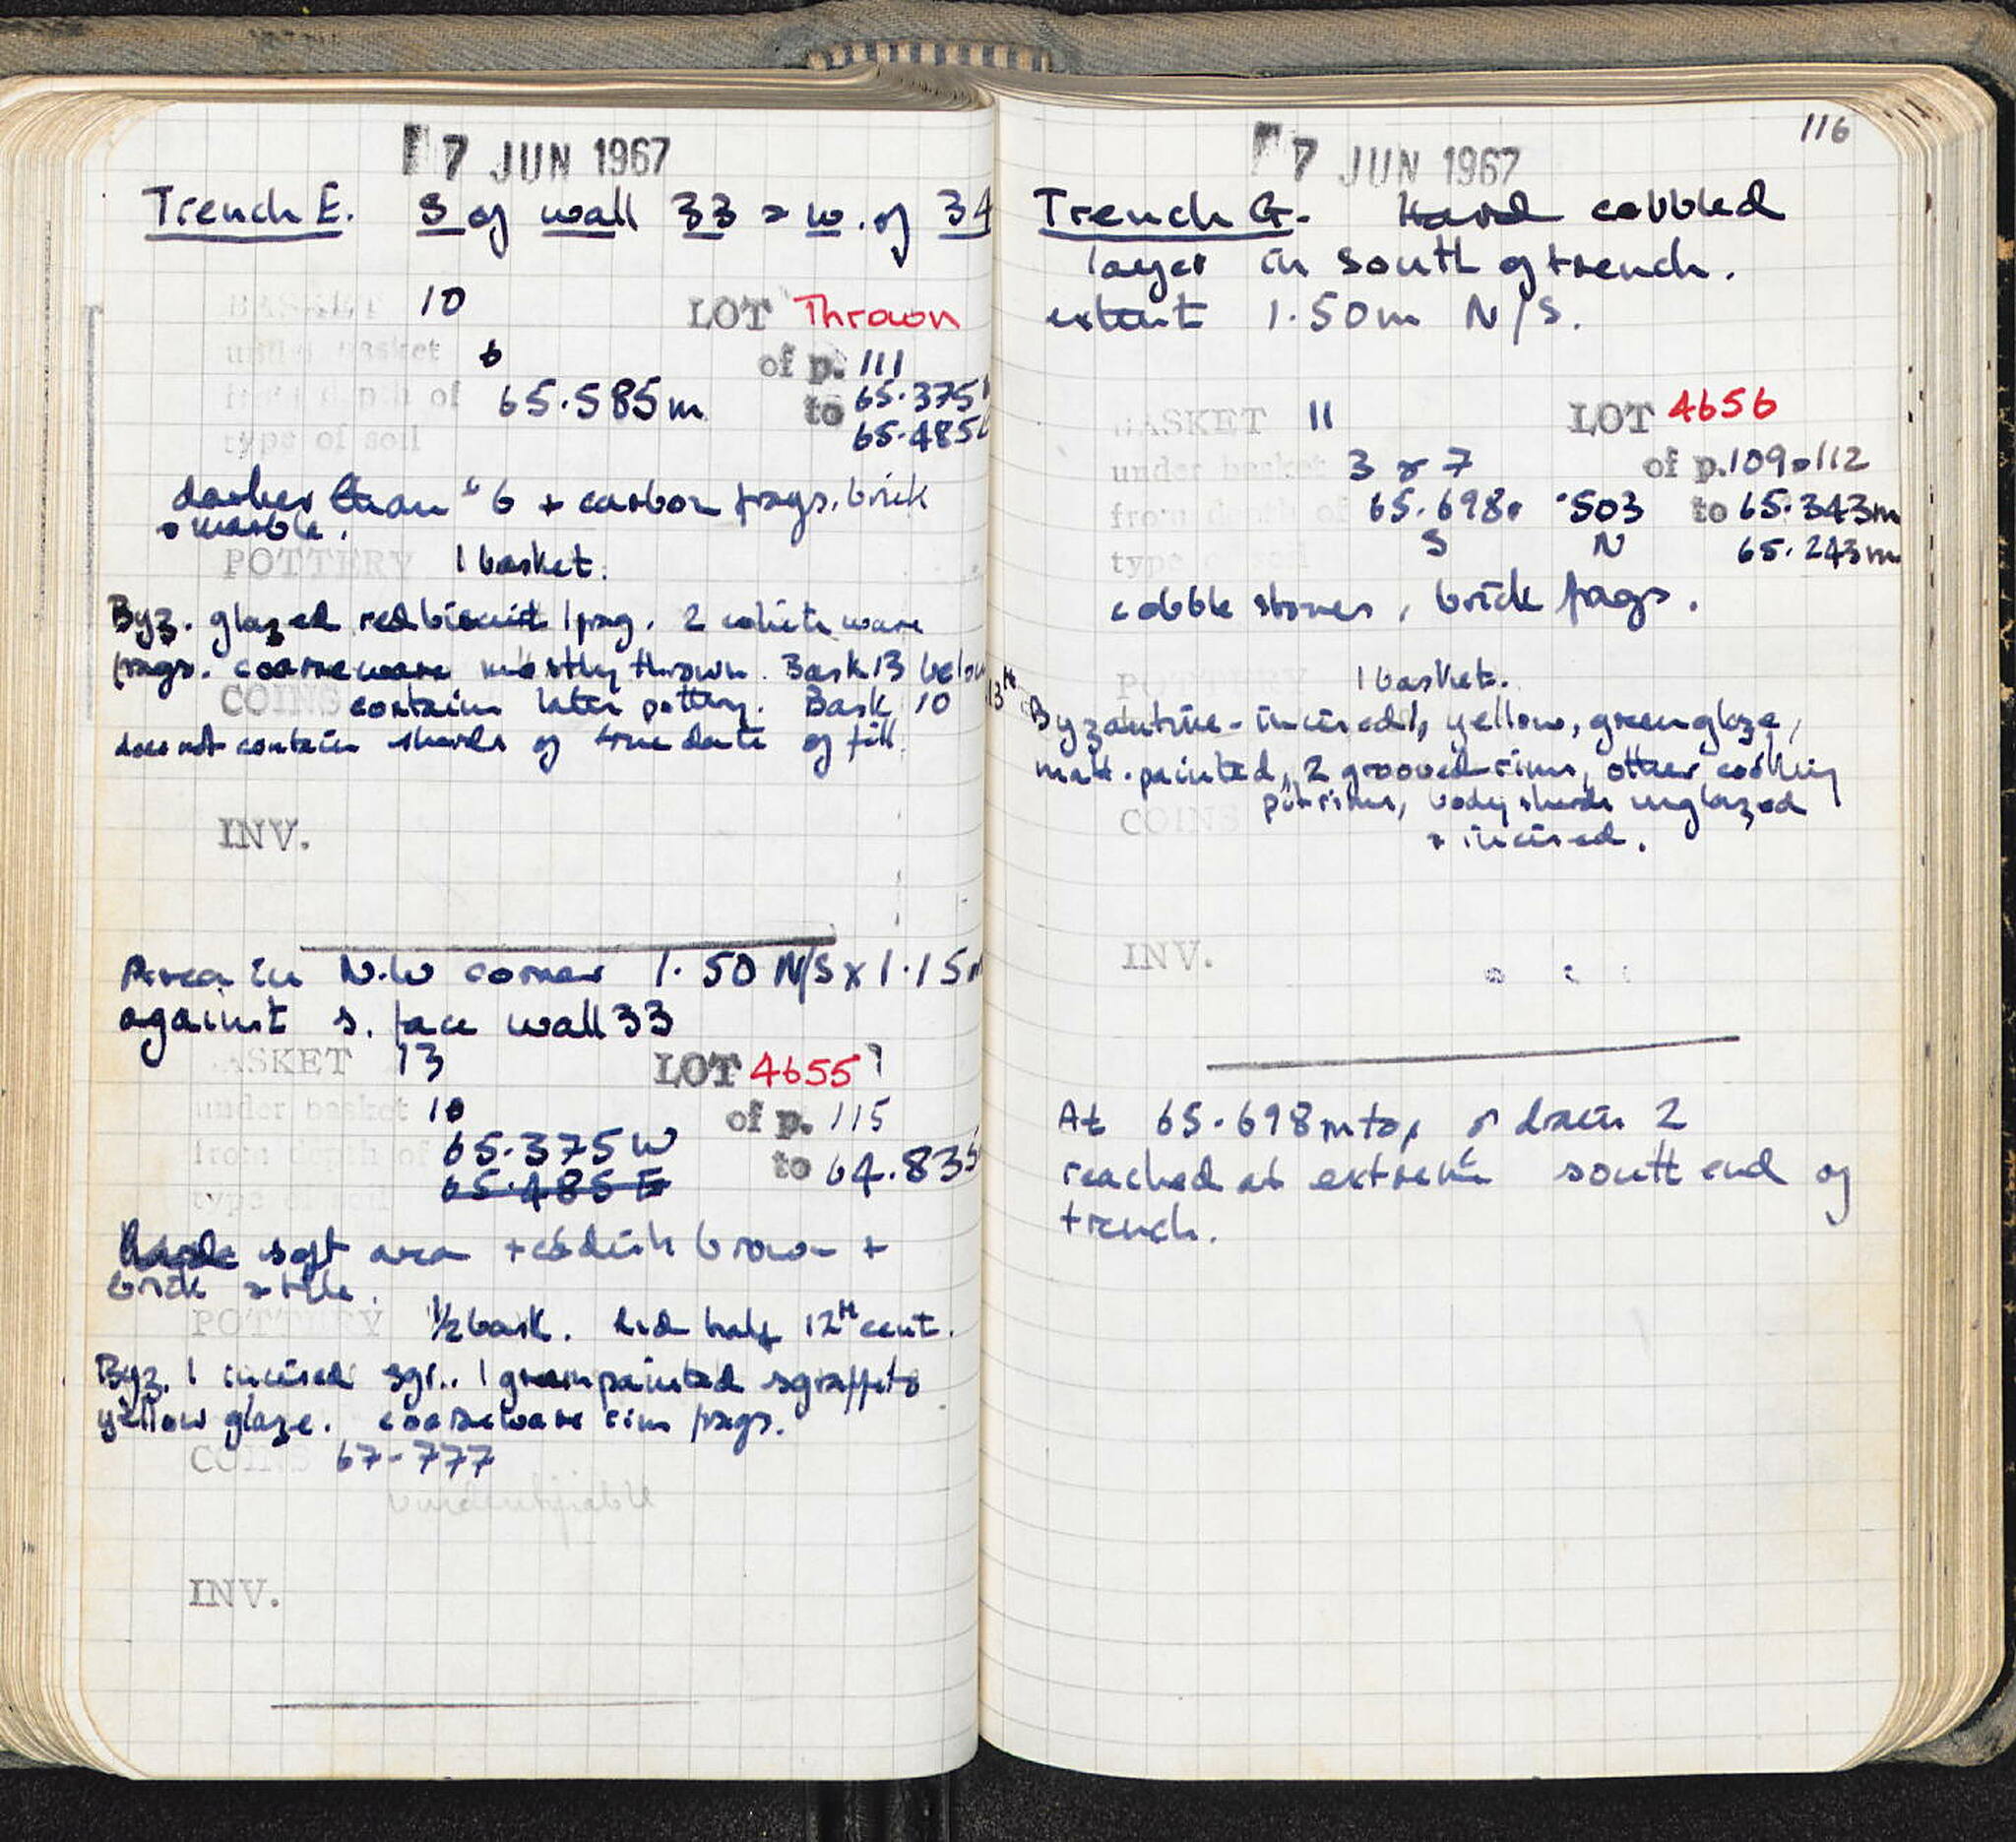 7 JUN 1967
Trench E. S of wall 33 & W. of 34
BASKET 10 LOT Thrown
under basket 6 of p. 111
from depth of 65.585m to 65.375
65.485
type of soil
darker than 6 + carbon frags, brick
& marble.
POTTERY 1 basket.
Byz. glazed red biscuit 1 frag. 2 white ware
frags. coarseware mostly thrown. Bask 13 below
COINS contains later pottery. Bask 10
does not contain sherds of true date of fill.
INV.
Area in N.W corner 1.50 N/S x 1.15m
against s. face wall 33
BASKET 13 LOT 4655
under basket 10 of p. 115
from depth of 65.375 W to 64.835
65.485 E
type of soil
soft area reddish brown +
brick & tile.
POTTERY 1/2 bask. 2nd half 12th cent.
Byz. 1 incised sgr.. 1 green painted sgraffito
yellow glaze. coarseware rim frags.
COINS 67-777
unidentifiable
INV.
116
7 JUN 1967
Trench G. Hard cobbled
layer in south of trench.
extent 1.50m N/S.
BASKET 11 LOT 4656
under basket 3 & 7 of p. 109 & 112
from depth of 65.698 .503 to 65.343m
S N 65.243m
type of soil
cobble stones, brick frags.
POTTERY 1 basket.
13th Byzantine - incised, yellow, green glaze,
matt. painted, 2 grooved rims, other cooking
pot rims, body sherds unglazed
COINS
& incised.
INV.
At 65.698m top of drain 2
reached at extreme south end of
trench.